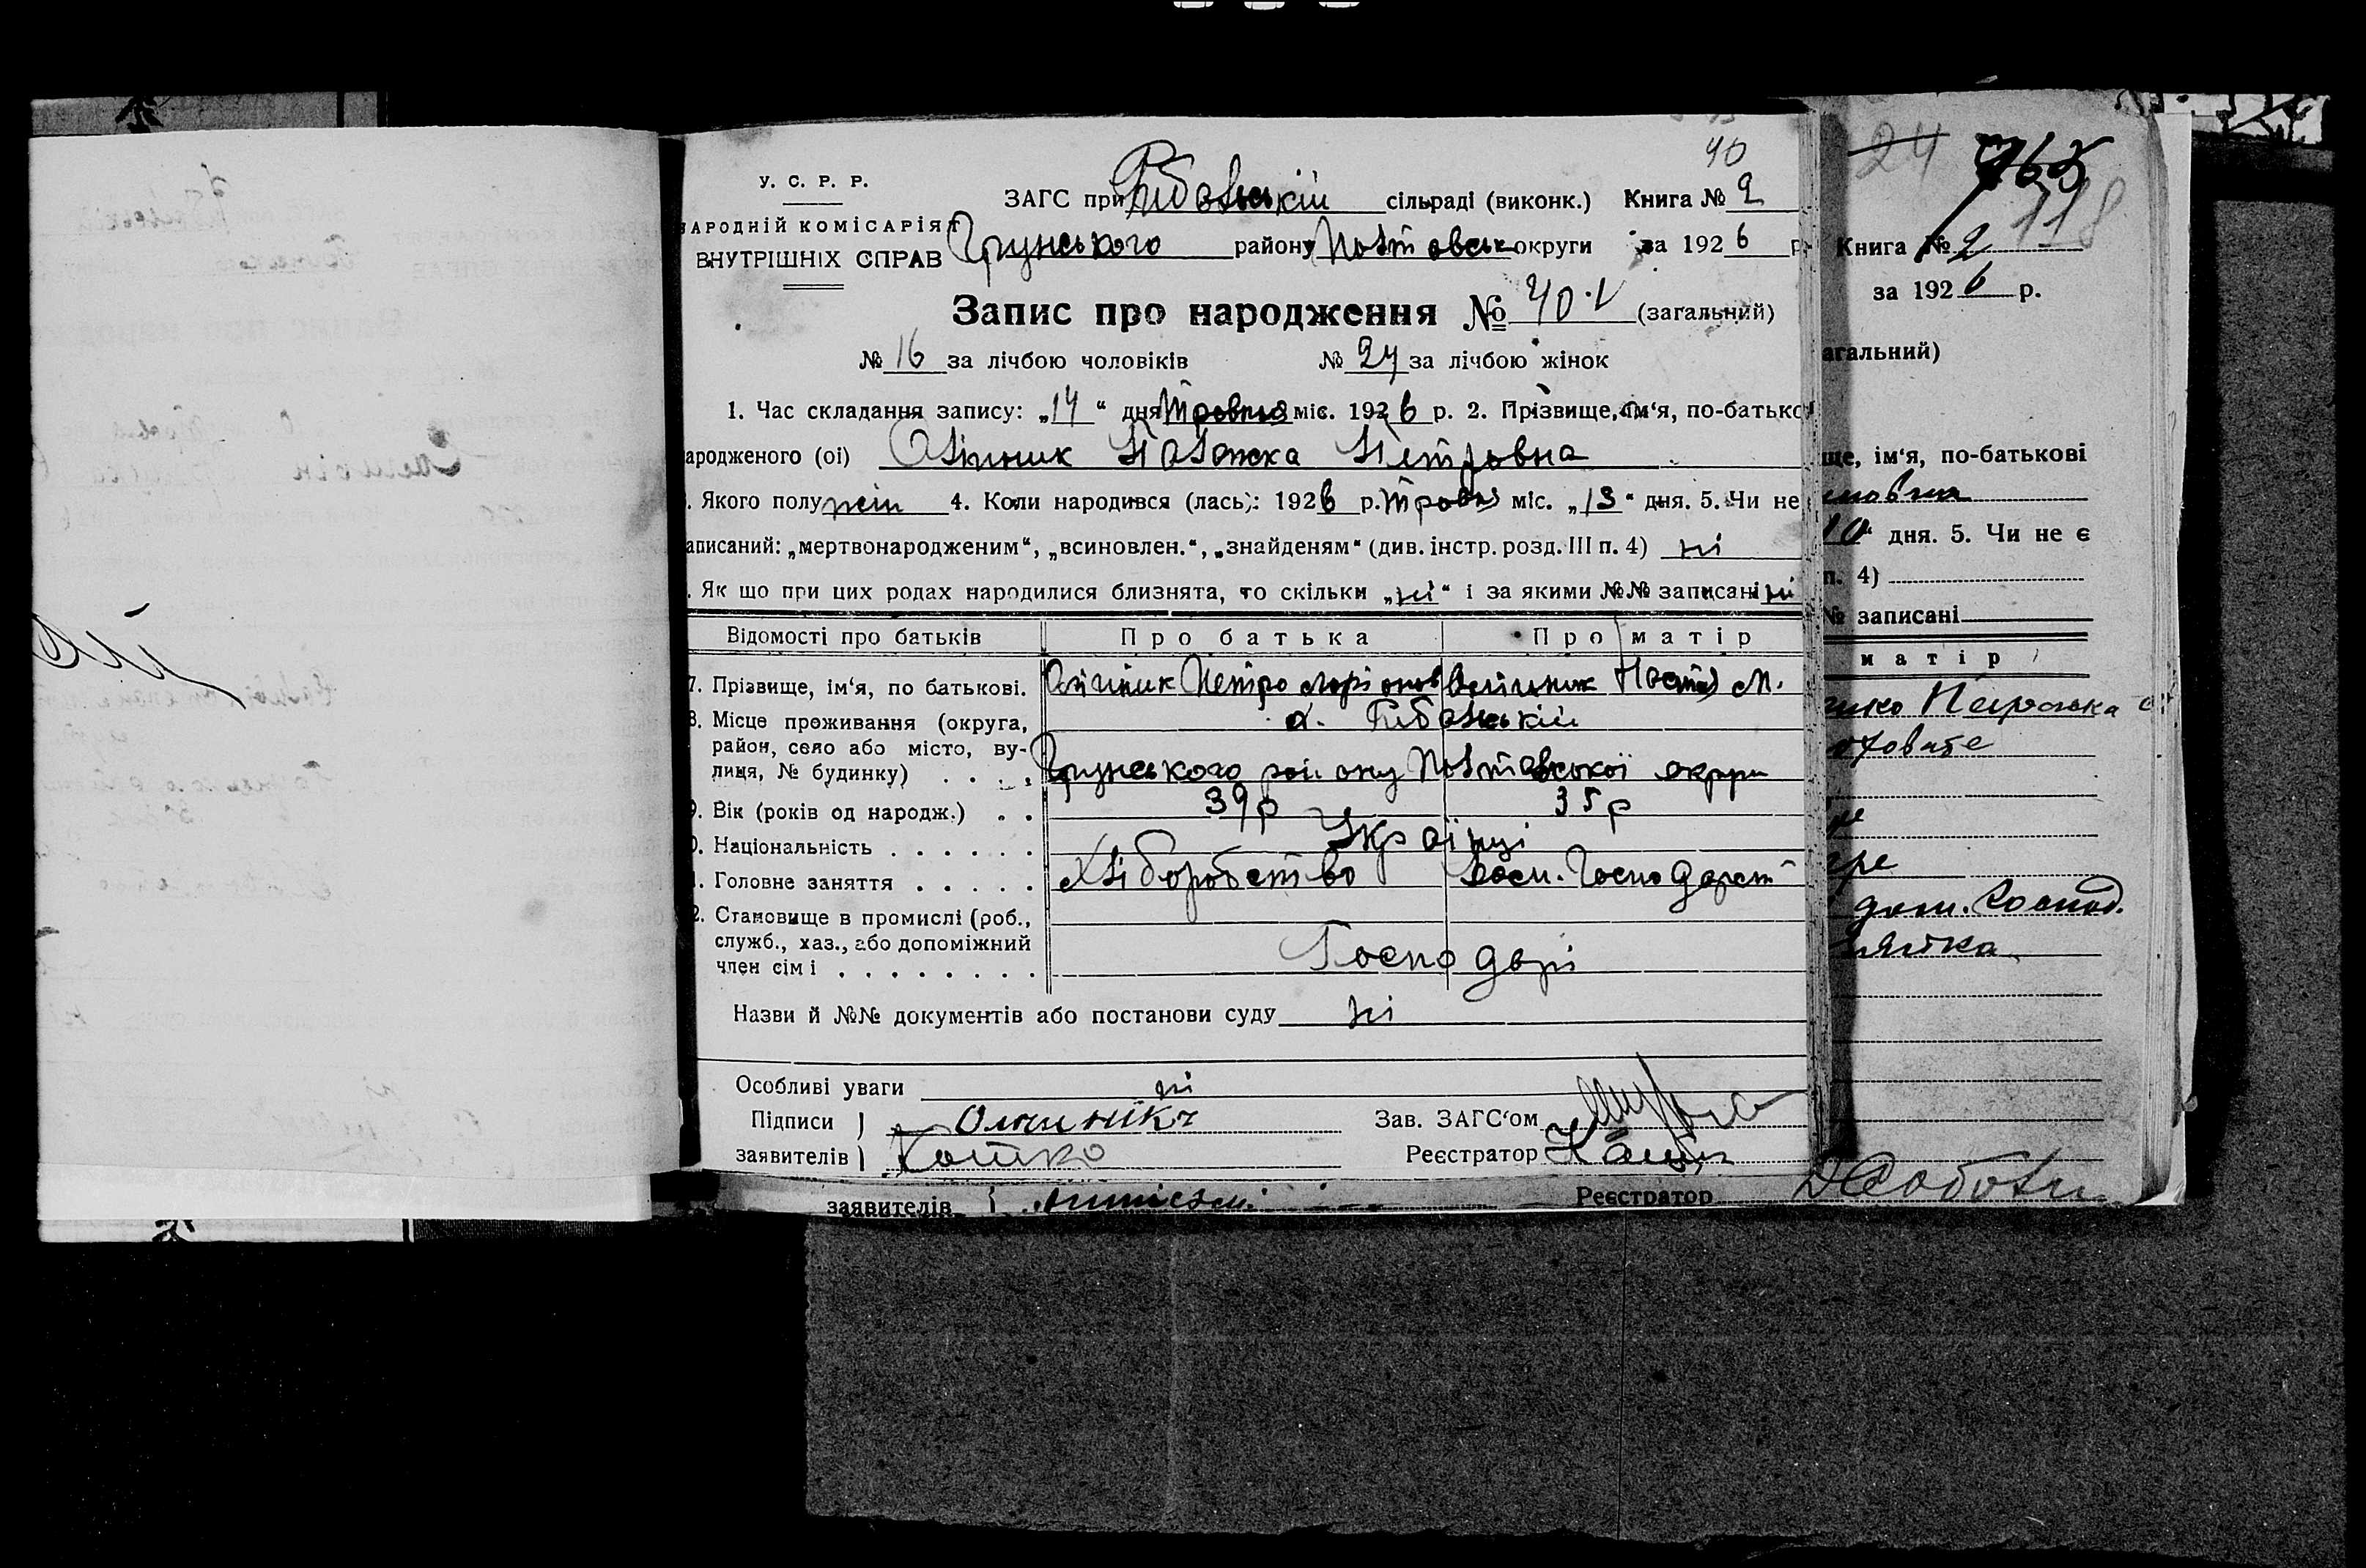 40
У. С. Р. Р.
НАРОДНІЙ КОМІСАРІЯТ
ВНУТРІШНІХ СПРАВ
ЗАГС при Рибальській сільраді (виконк.) Книга № 2
Грунського району Полтавськ округи за 1926 р.
Запис про народження № 40 (загальний)
№ 16 за лічбою чоловіків № 24 за лічбою жінок
1. Час складання запису: „14“ дня травня міс. 1926 р. 2. Прізвище, ім‘я, по-батьков
ародженого (ої) Олійник Палажка Петровна
. Якого полу жін 4. Коли народився (лась): 1926 р. травня міс. „13“ дня. 5. Чи не
аписаний: „мертвонародженим“, „всиновлен.“, „знайденям“ (див. інстр. розд. III п. 4) ні
. Як що при цих родах народилися близнята, то скільки „ні“ і за якими №№ записані ні
Відомості про батьків Про батька Про матір
7. Прізвище, ім‘я, по батькові. Олійник Петро Ларіонов Олійник Настя М.
8. Місце проживання (округа, район, село або місто, вулиця, № будинку) . . . .
Рибальській
Грунського району Полтавської округи
9. Вік (років од народж.) . . 39 р 35 р
0. Національність . . . . . . Українці
1. Головне заняття . . . . . Хліборобство Господарст
2. Становище в промислі (роб.,
служб., хаз., або допоміжний
член сімі . . . . . . . . . Господарі
Назви й №№ документів або постанови суду ні
Особливі уваги ні
Підписи ) Олійник Зав. ЗАГС‘ом
заявителів ) Кошко Реєстратор
заявителів Реєстратор
24
118
Книга № 2
за 1926 р.
агальний)
ще, ім‘я, по-батькові
10“ дня. 5. Чи не є
п. 4)
№ записані
матір
дом. господ.